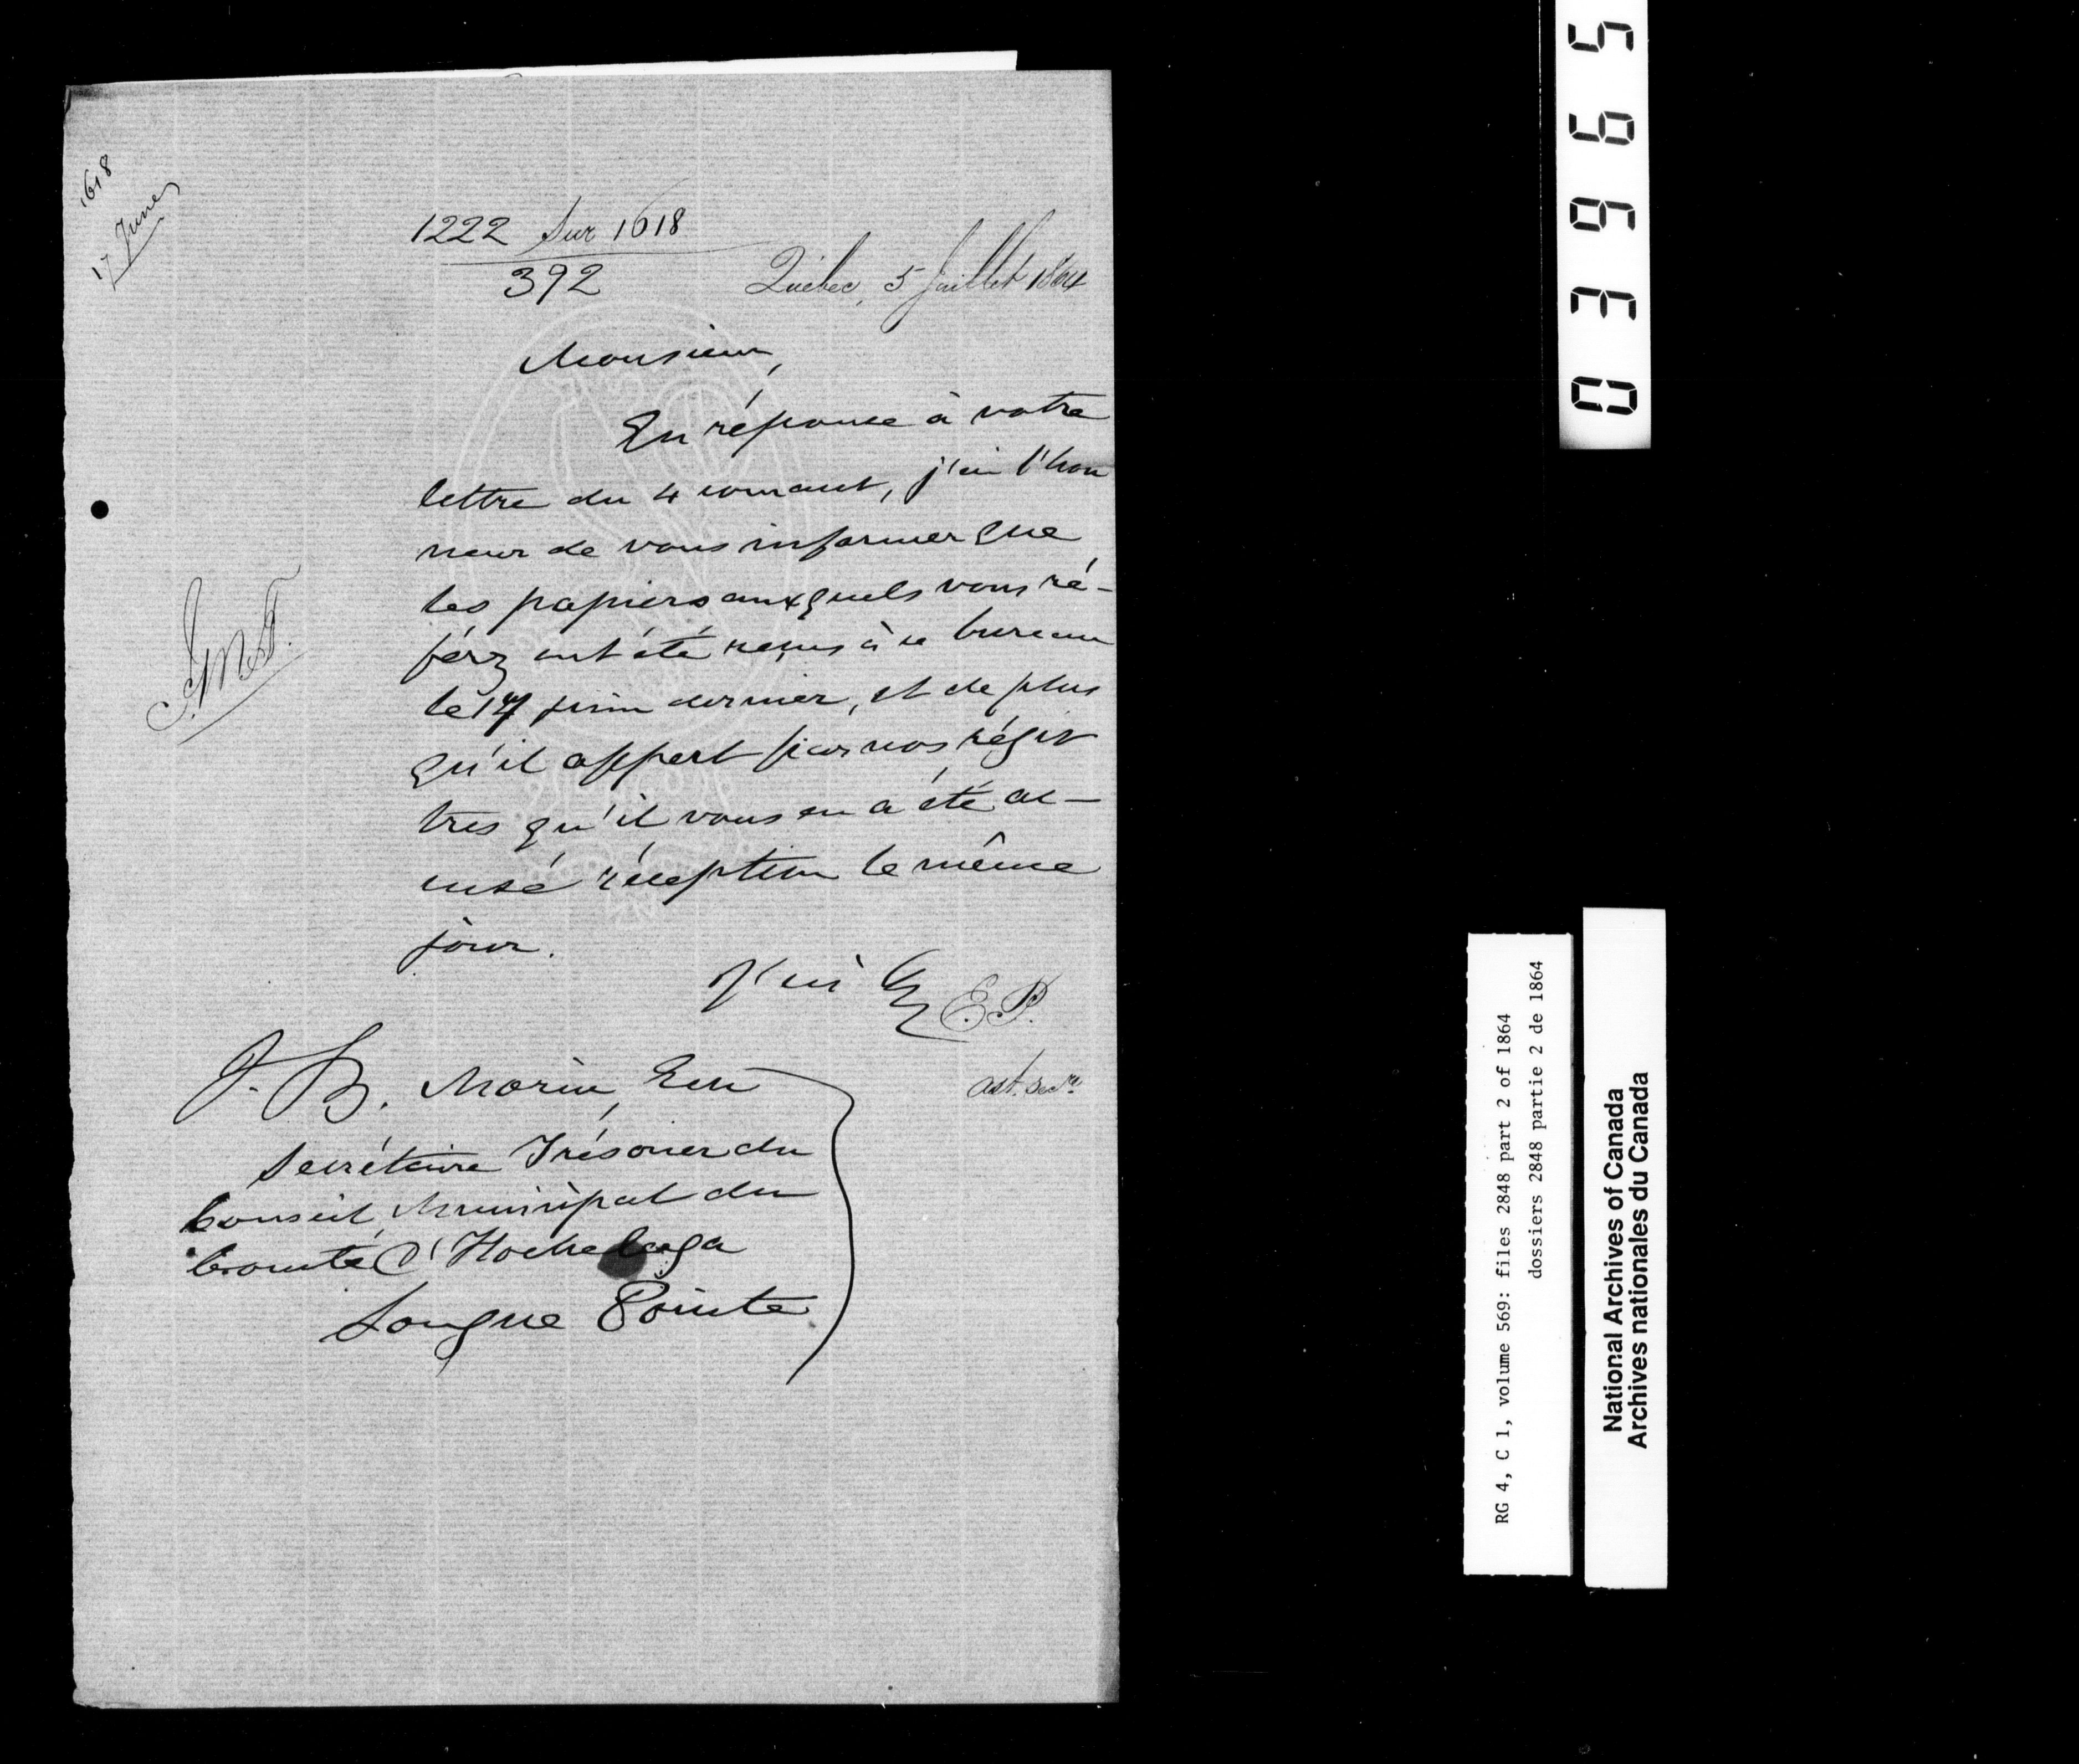 1618
17 June
1222 Sur 1618
392
Québec, 5 Juillet 1864
Monsieur,
En réponse à votre
lettre du 4 courant, j'ai l'hon
neur de vous informer que
les papiers auxquels vous ré-
férez ont été reçus à ce bureau
le 17 juin dernier, et de plus
qu'il appert par nos régis
tres qu'il vous en a été ac-
cusé réception le même
jour.
J'ai &c
E.P.
ast. secre.
J. B. Morin, Ecr
Secrétaire Trésorier du
Conseil Municipal du
Comté d'Hochelaga
Longue Pointe
03965
RG 4, C 1, volume 569: files 2848 part 2 of 1864
dossiers 2848 partie 2 de 1864
National Archives of Canada
Archives nationales du Canada